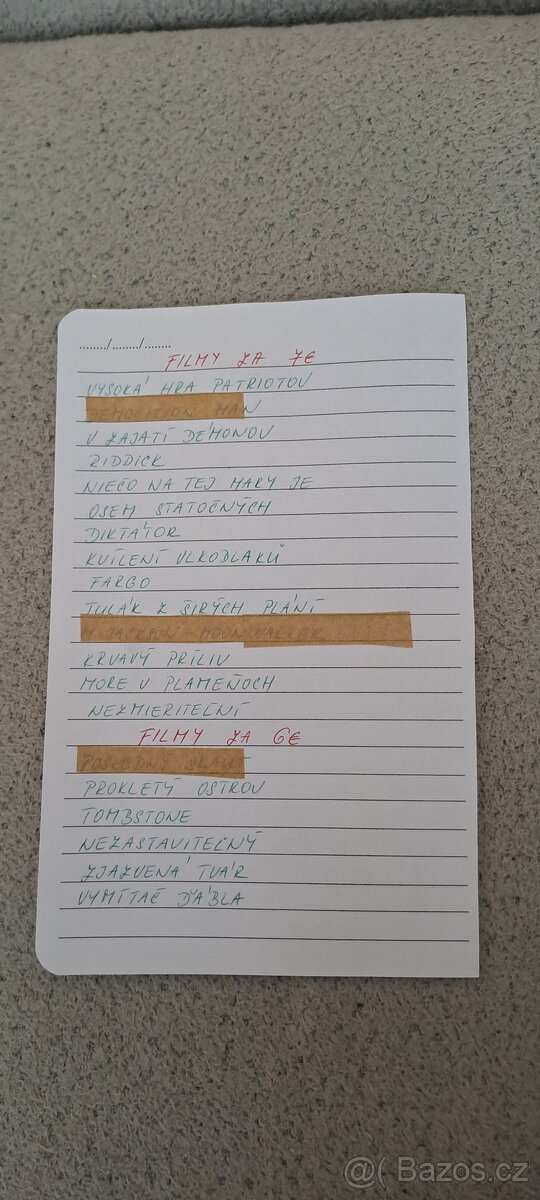 ......../......../........
FILMY ZA 7€
VYSOKÁ HRA PATRIOTOV
DEMOLITION MAN
V ZAJATÍ DÉMONOV
RIDDICK
NIEČO NA TEJ MARY JE
OSEM STATOČNÝCH
DIKTÁTOR
KVÍLENÍ VLKODLAKŮ
FARGO
TULÁK Z ŠIRÝCH PLÁNÍ
M JACKSON MOONWALKER
KRVAVÝ PRÍLIV
MORE V PLAMEŇOCH
NEZMIERITEĽNÍ
FILMY ZA 6€
POSLEDNÝ SKAUT
PROKLETÝ OSTROV
TOMBSTONE
NEZASTAVITEĽNÝ
ZJAZVENÁ TVÁR
VYMÍTAČ ĎÁBLA
@( Bazos.cz